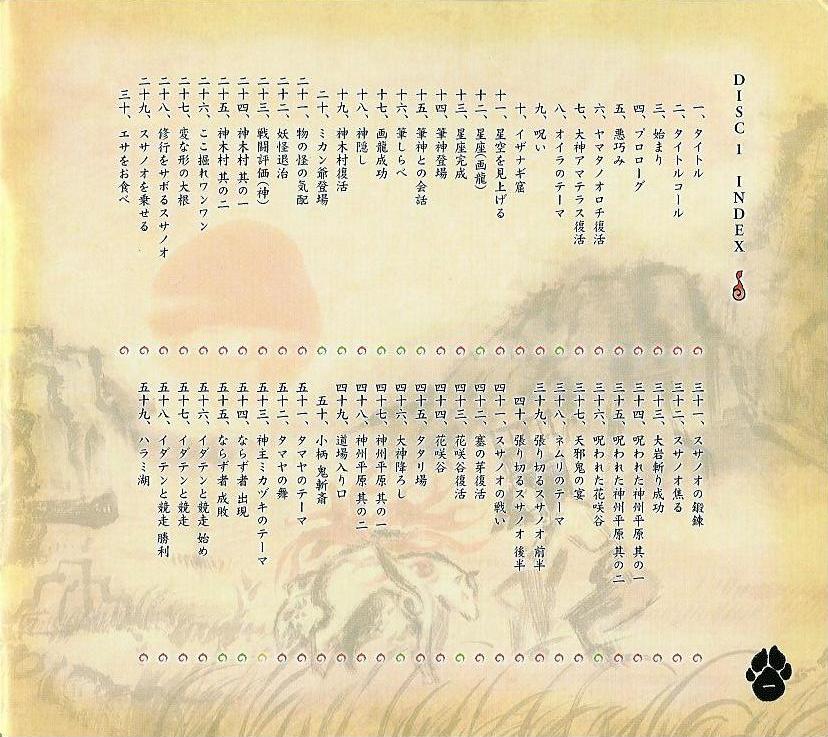 DISC 1 INDEX
一、タイトル
二、タイトルコール
三、始まり
四、プロローグ
五、悪巧み
六、ヤマタノオロチ復活
七、大神アマテラス復活
八、オイラのテーマ
九、呪い
十、イザナギ窟
十一、星空を見上げる
十二、星座(画龍)
十三、星座完成
十四、筆神登場
十五、筆神との会話
十六、筆しらべ
十七、画龍成功
十八、神隠し
十九、神木村復活
二十、ミカン爺登場
二十一、物の怪の気配
二十二、妖怪退治
二十三、戦闘評価(神)
二十四、神木村 其の一
二十五、神木村 其の二
二十六、ここ掘れワンワン
二十七、変な形の大根
二十八、修行をサボるスサノオ
二十九、スサノオを乗せる
三十、エサをお食べ
三十一、スサノオの鍛錬
三十二、スサノオ焦る
三十三、大岩斬り成功
三十四、呪われた神州平原 其の一
三十五、呪われた神州平原 其の二
三十六、呪われた花咲谷
三十七、天邪鬼の宴
三十八、ネムリのテーマ
三十九、張り切るスサノオ 前半
四十、張り切るスサノオ 後半
四十一、スサノオの戦い
四十二、塞の芽復活
四十三、花咲谷復活
四十四、花咲谷
四十五、タタリ場
四十六、大神降ろし
四十七、神州平原 其の一
四十八、神州平原 其の二
四十九、道場入り口
五十、小柄 鬼斬斎
五十一、タマヤのテーマ
五十二、タマヤの舞
五十三、神主ミカヅキのテーマ
五十四、ならず者 出現
五十五、ならず者 成敗
五十六、イダテンと競走 始め
五十七、イダテンと競走
五十八、イダテンと競走 勝利
五十九、ハラミ湖
一